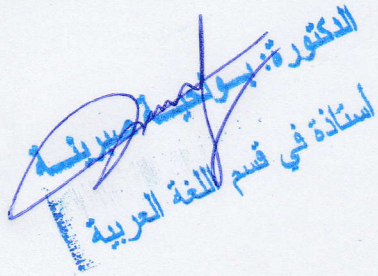 الدكتورة: صبرينة
أستاذة في قسم اللغة العربية